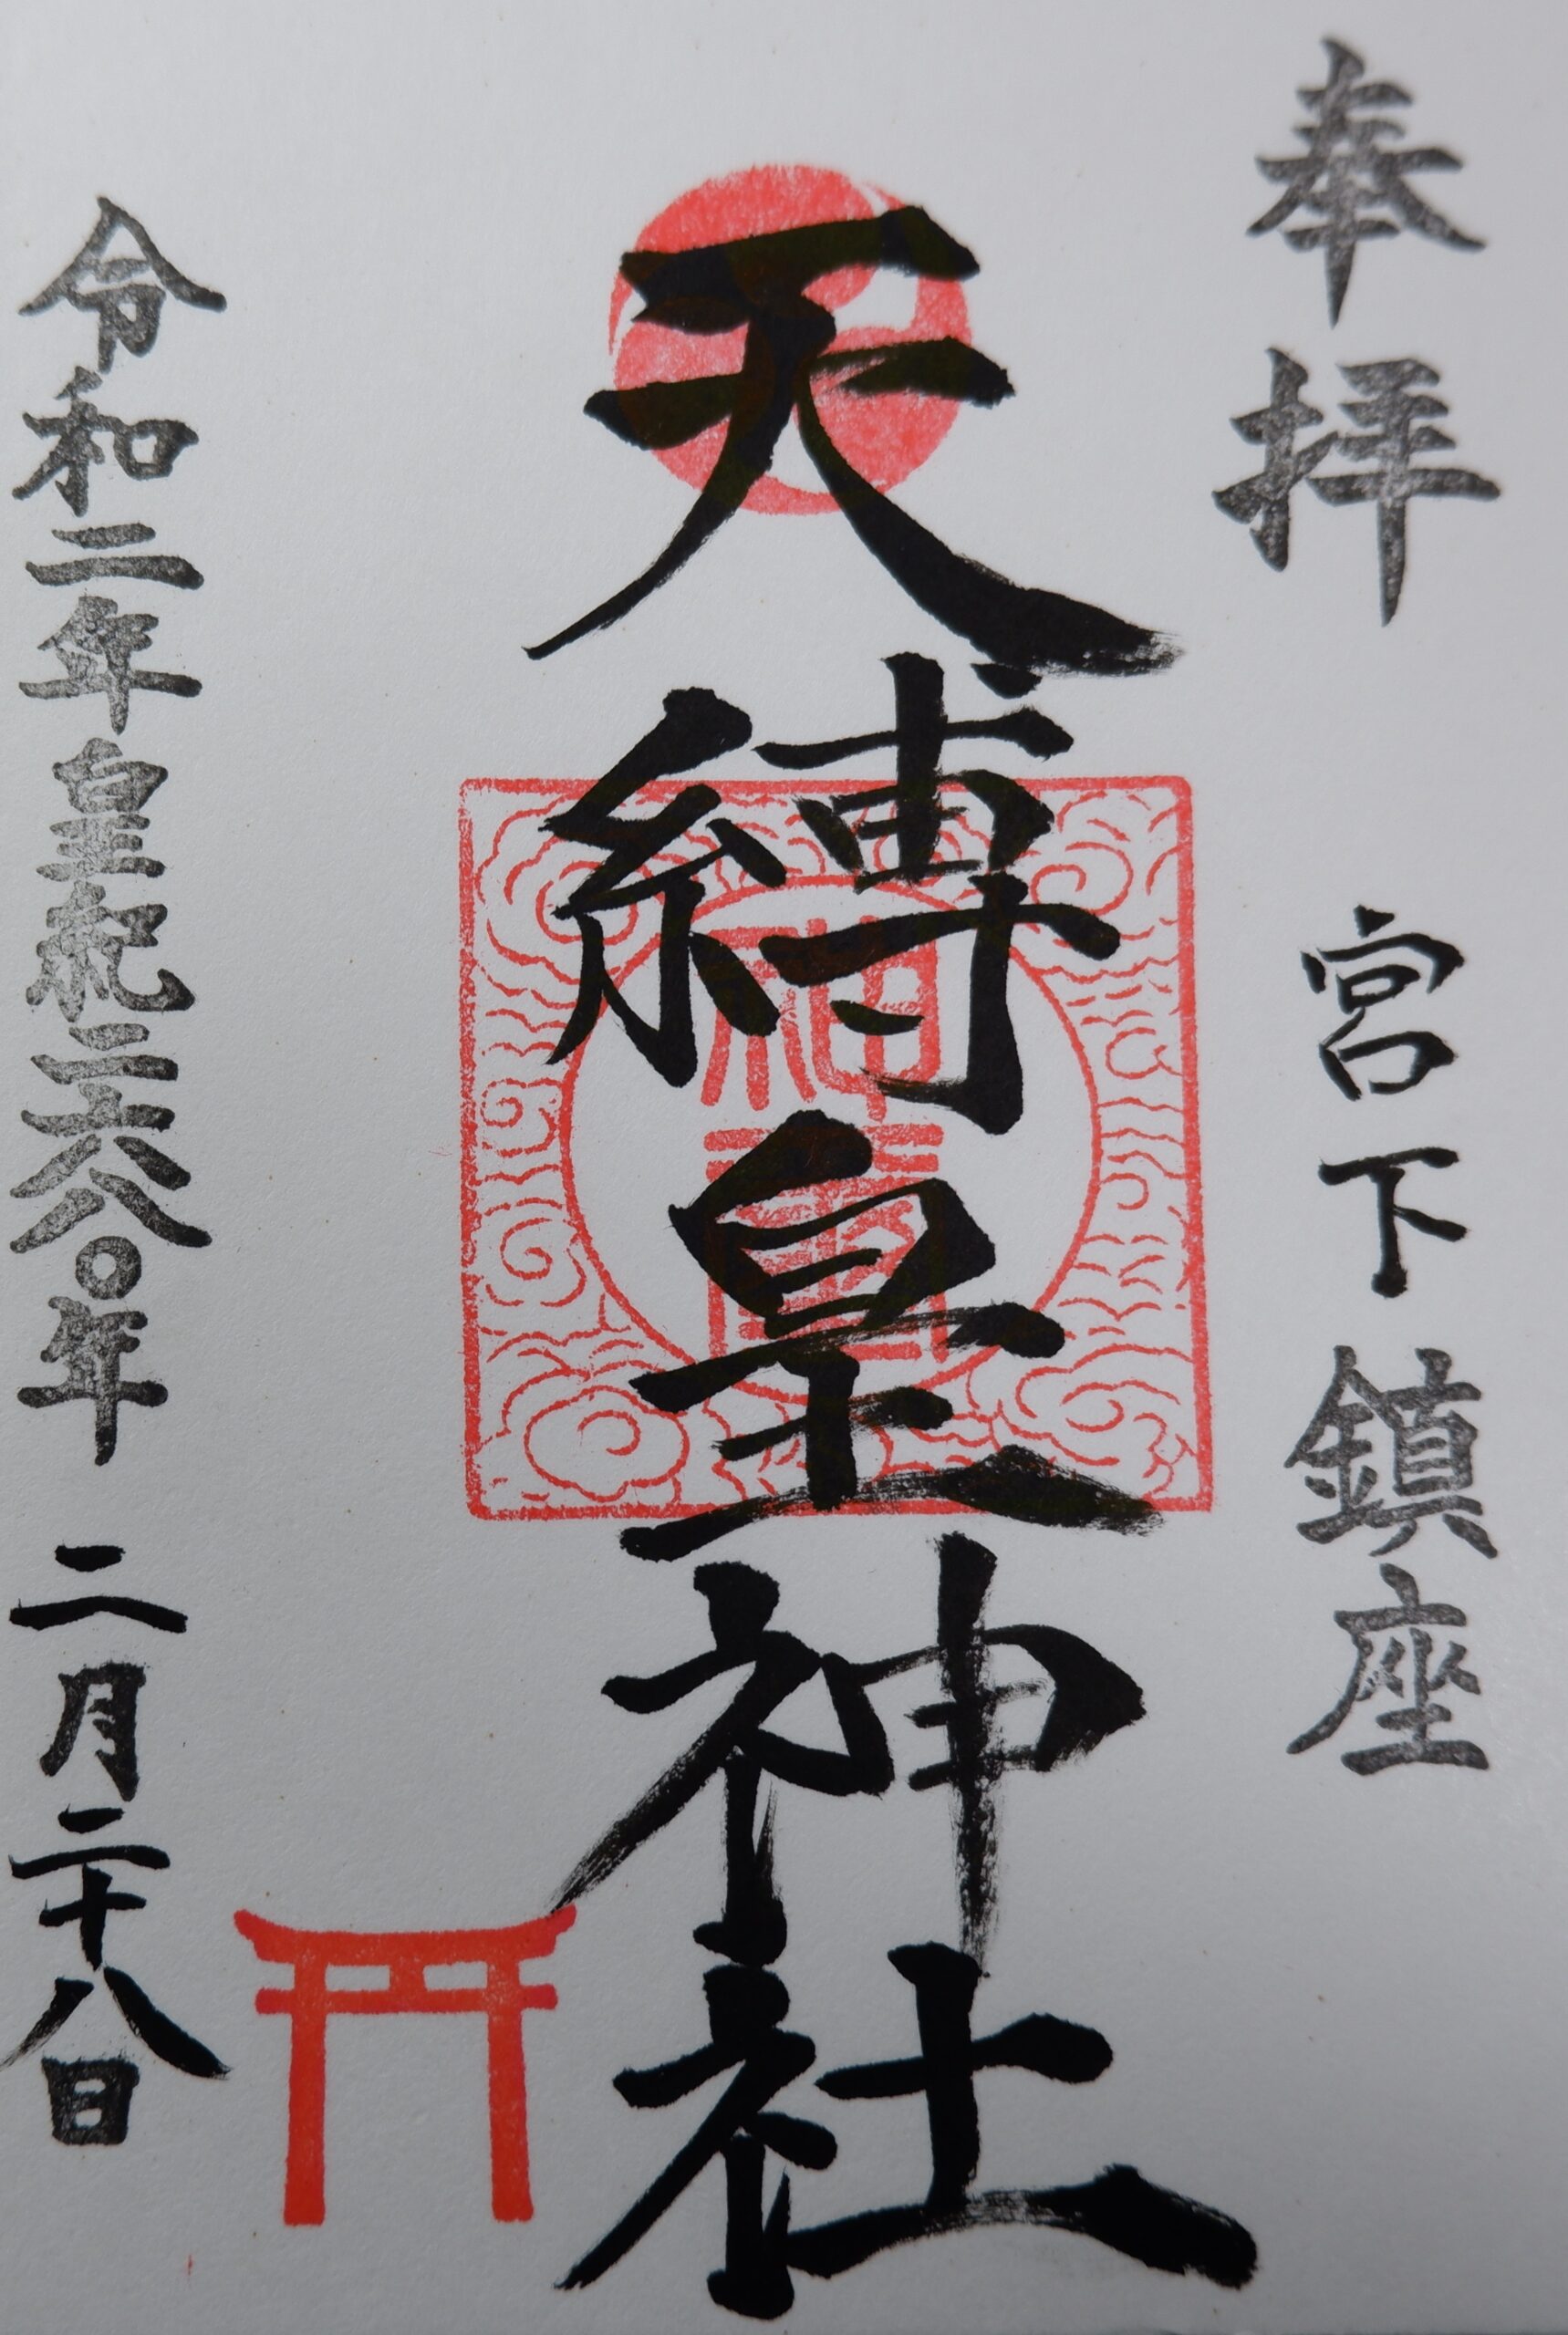 奉拝 宮下 鎮座
天縛皇神社
神璽
令和二年皇紀二六八〇年 二月二十八日